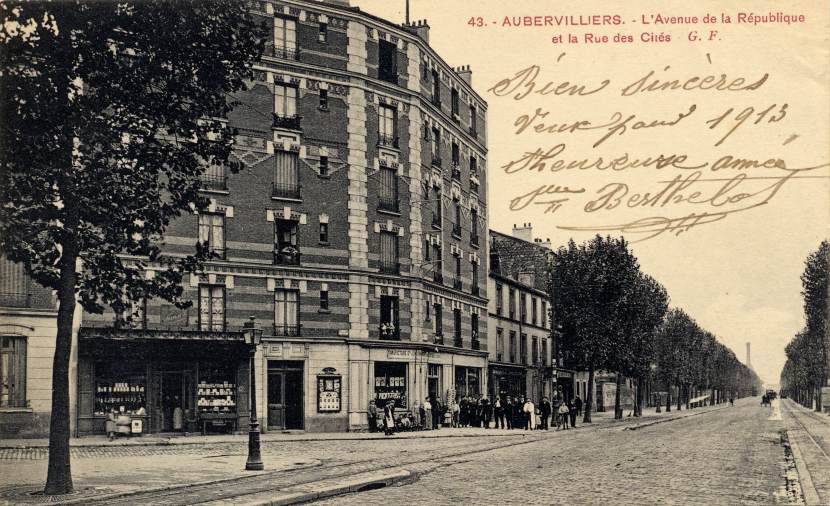 43. - AUBERVILLIERS. - L'Avenue de la République
et la Rue des Cités - G. F.
Bien sincères
Veux pour 1913
& heureuse année
Berthelot